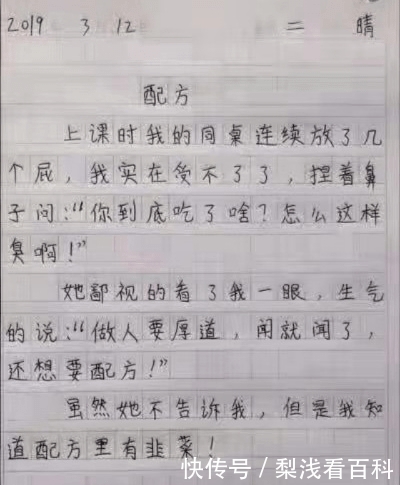 2019 3 12 二 晴
配方
上课时我的同桌连续放了几
个屁,我实在受不了了,捏着鼻
子问:“你到底吃了啥?怎么这样
臭啊!”
她鄙视的看了我一眼,生气
的说:“做人要厚道,闻就闻了,
还想要配方!”
虽然她不告诉我,但是我知
道配方里有韭菜!
快传号/梨浅看百科